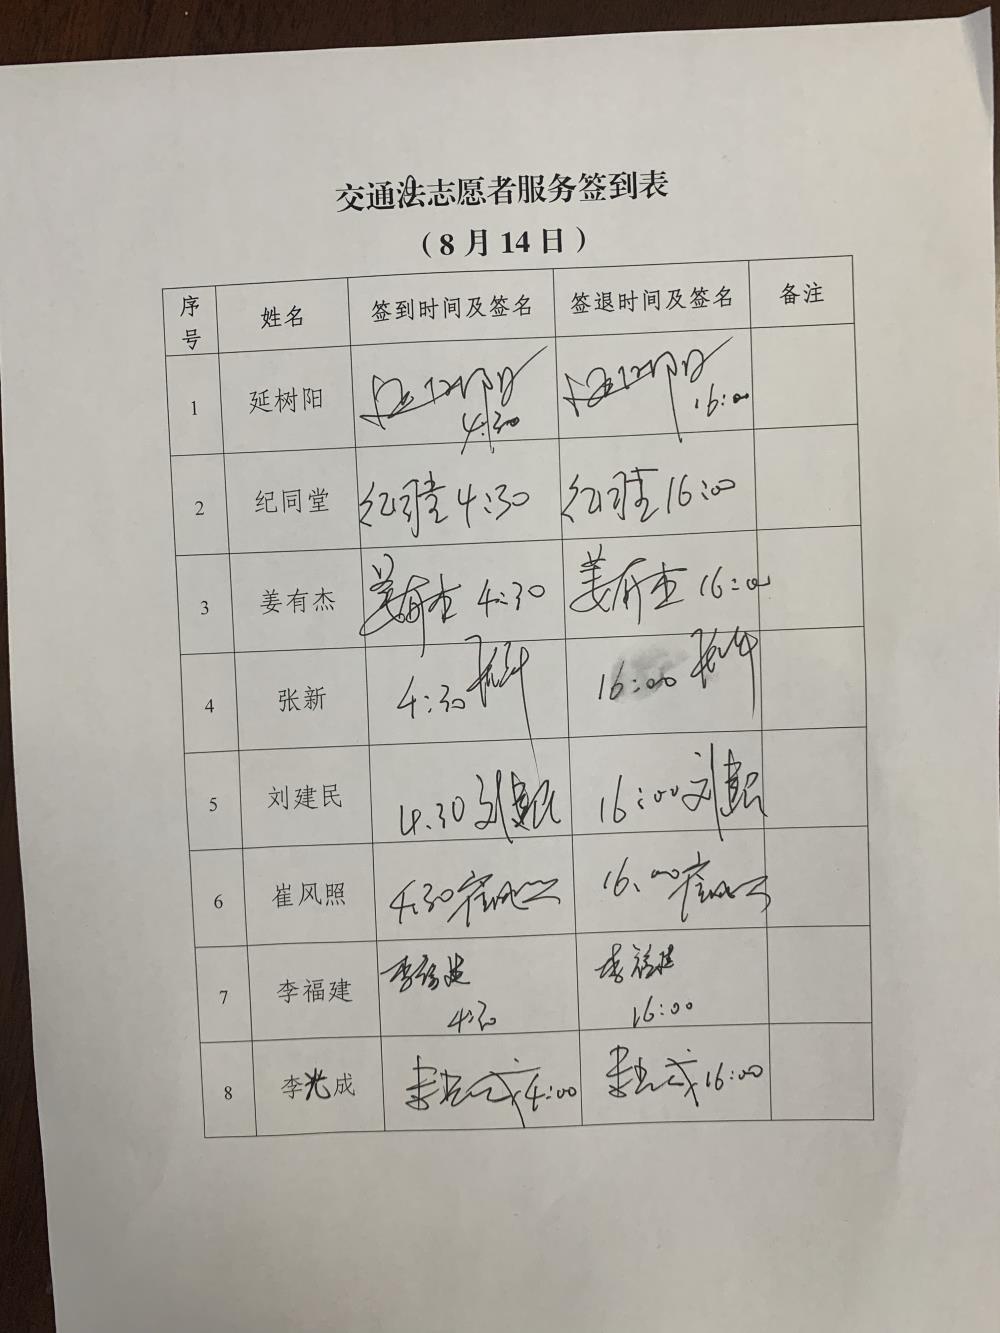 交通法志愿者服务签到表
（8月14日）
序号 姓名 签到时间及签名 签退时间及签名 备注
1 延树阳 延树阳 4:30 延树阳 16:00
2 纪同堂 纪同堂 4:30 纪同堂 16:00
3 姜有杰 姜有杰 4:30 姜有杰 16:00
4 张新 4:30 张新 16:00 张新
5 刘建民 4:30 刘建民 16:00 刘建民
6 崔风照 4:30 崔风照 16:00 崔风照
7 李福建 李福建 4:30 李福建 16:00
8 李光成 李光成 4:00 李光成 16:00